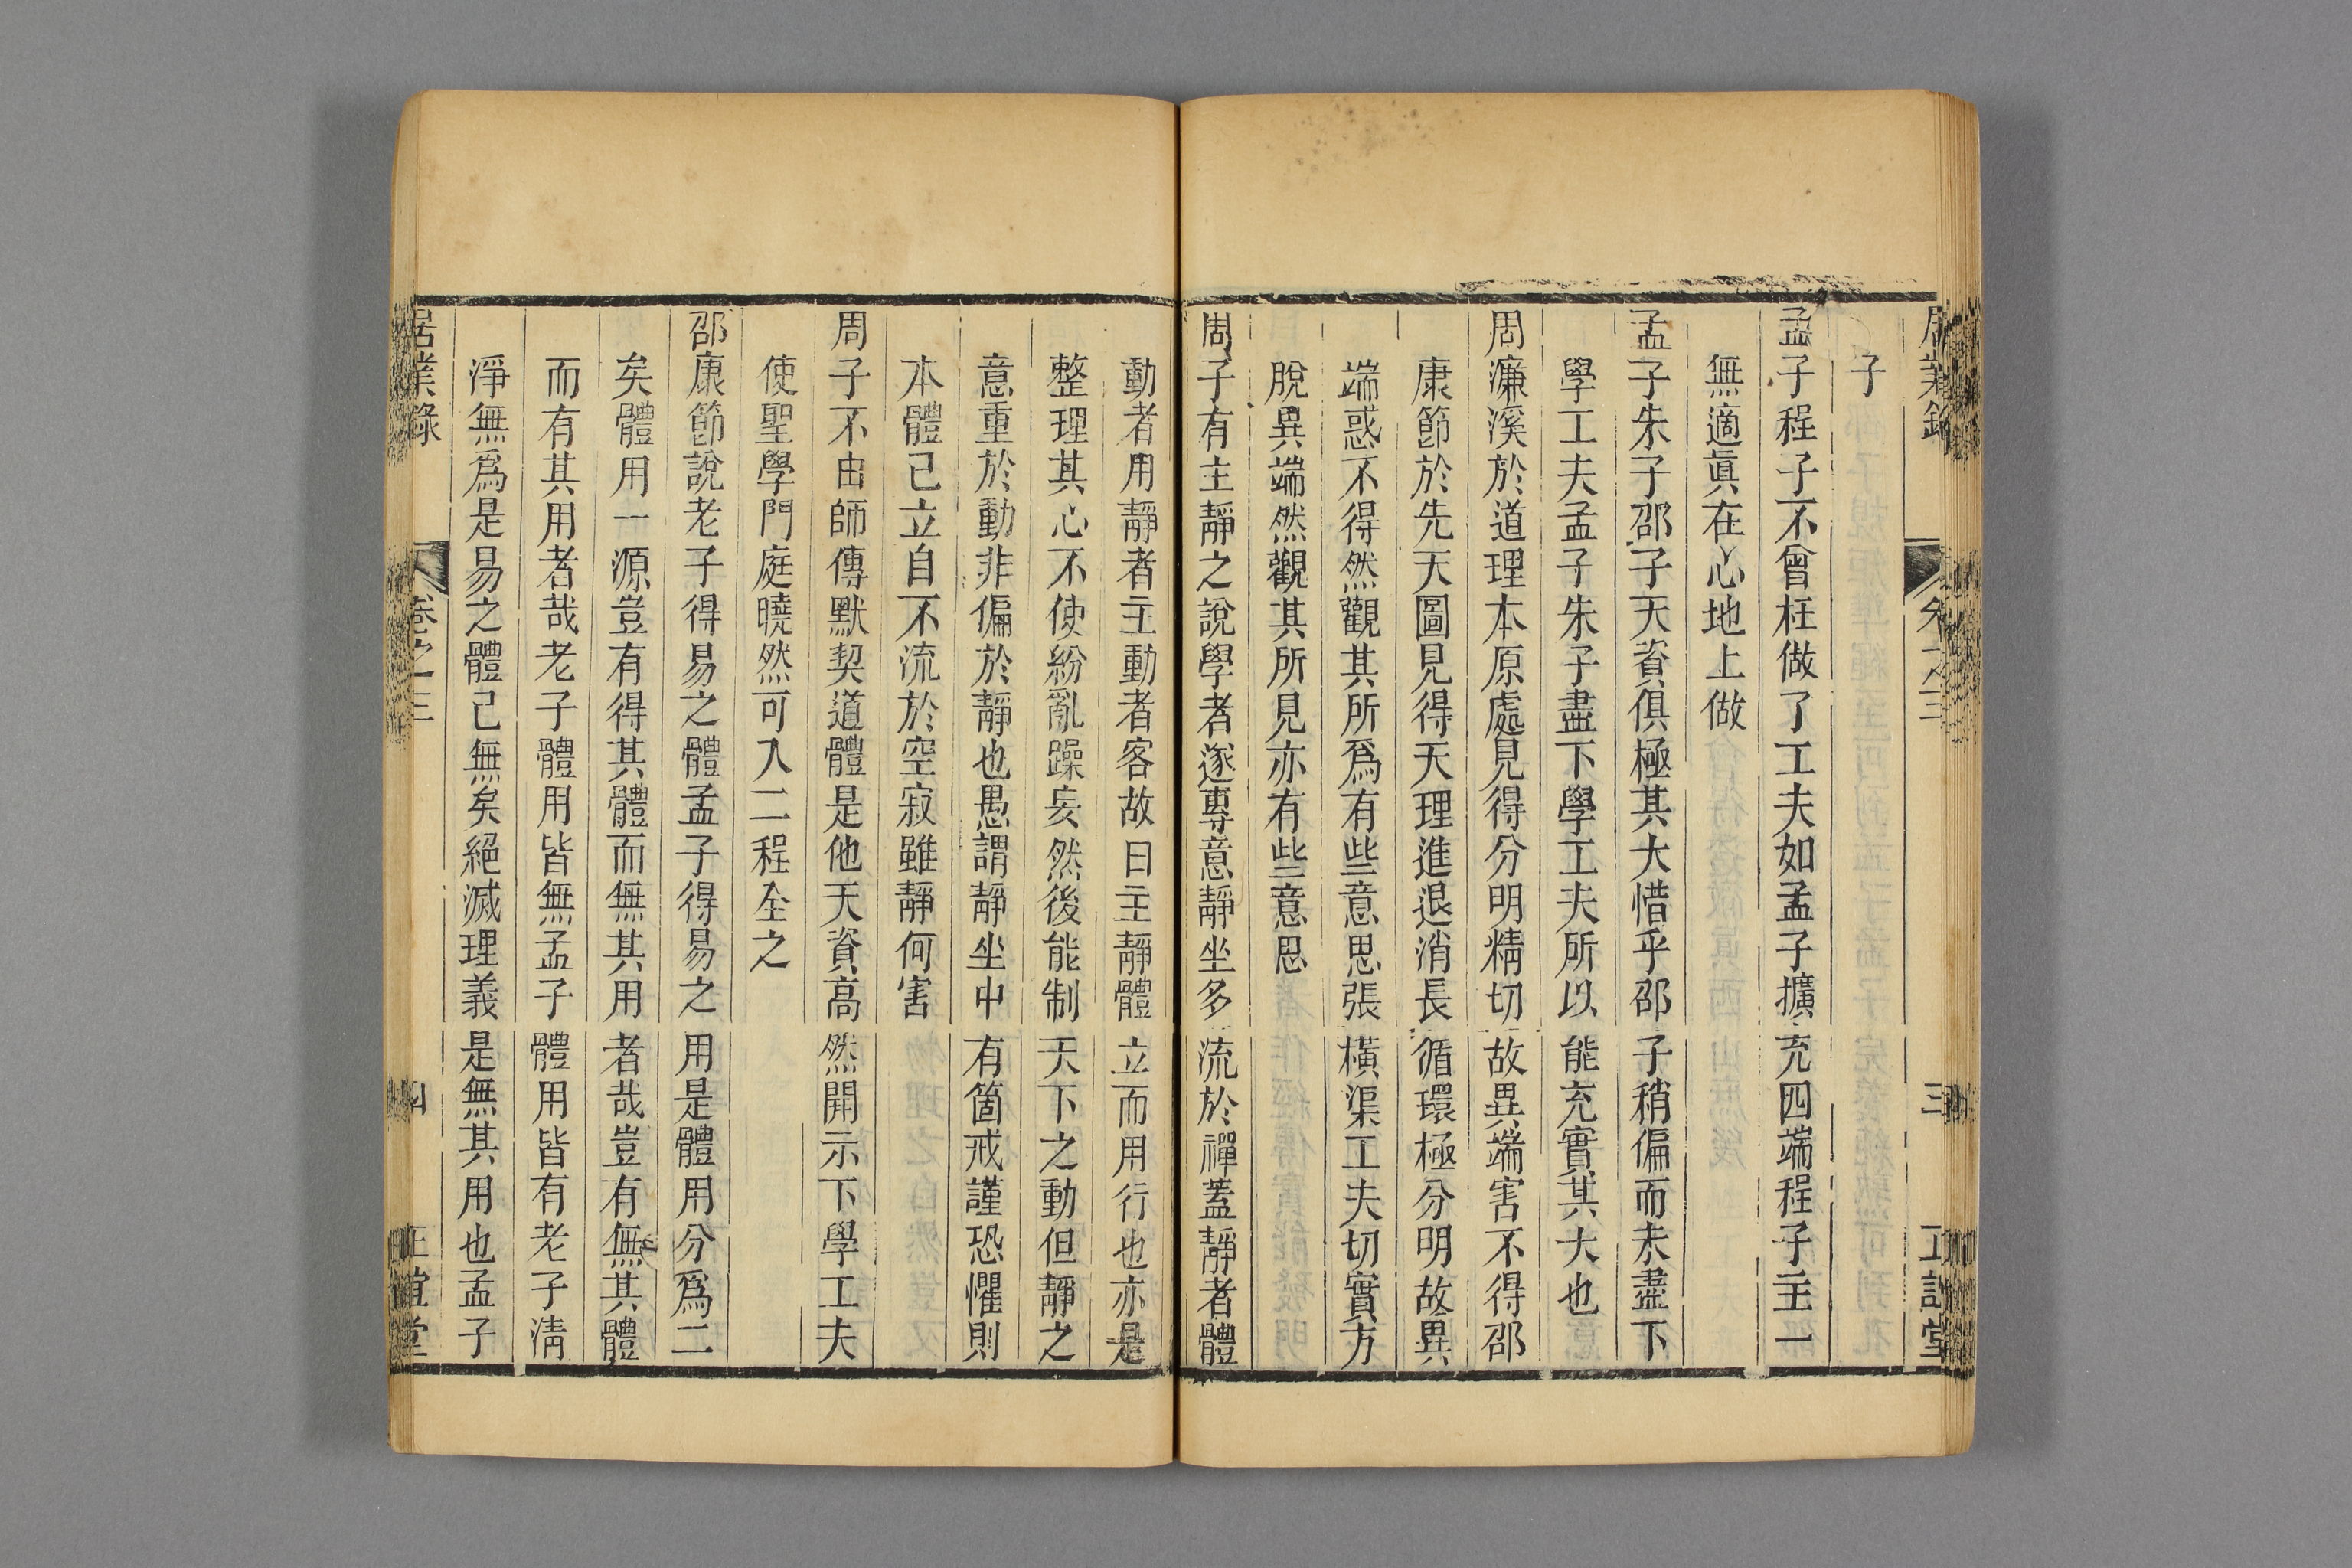 子
孟子程子不曾枉做了工夫如孟子擴充四端程子主一
無適眞在心地上做
孟子朱子邵子天資俱極其大惜乎邵子稍偏而未盡下
學工夫孟子朱子盡下學工夫所以能充實其大也
周濂溪於道理本原處見得分明精切故異端害不得邵
康節於先天圖見得天理進退消長循環極分明故異
端惑不得然觀其所爲有些意思張橫渠工夫切實方
脫異端然觀其所見亦有些意思
周子有主靜之說學者遂專意靜坐多流於禪蓋靜者體
動者用靜者主動者客故曰主靜體立而用行也亦是
整理其心不使紛亂躁妄然後能制天下之動但靜之
意重於動非偏於靜也愚謂靜坐中有箇戒謹恐懼則
本體已立自不流於空寂雖靜何害
周子不由師傳默契道體是他天資高然開示下學工夫
使聖學門庭曉然可入二程全之
邵康節說老子得易之體孟子得易之用是體用分爲二
矣體用一源豈有得其體而無其用者哉豈有無其體
而有其用者哉老子體用皆無孟子體用皆有老子淸
淨無爲是易之體已無矣絕滅理義是無其用也孟子
居業錄 卷之三 四 正誼堂